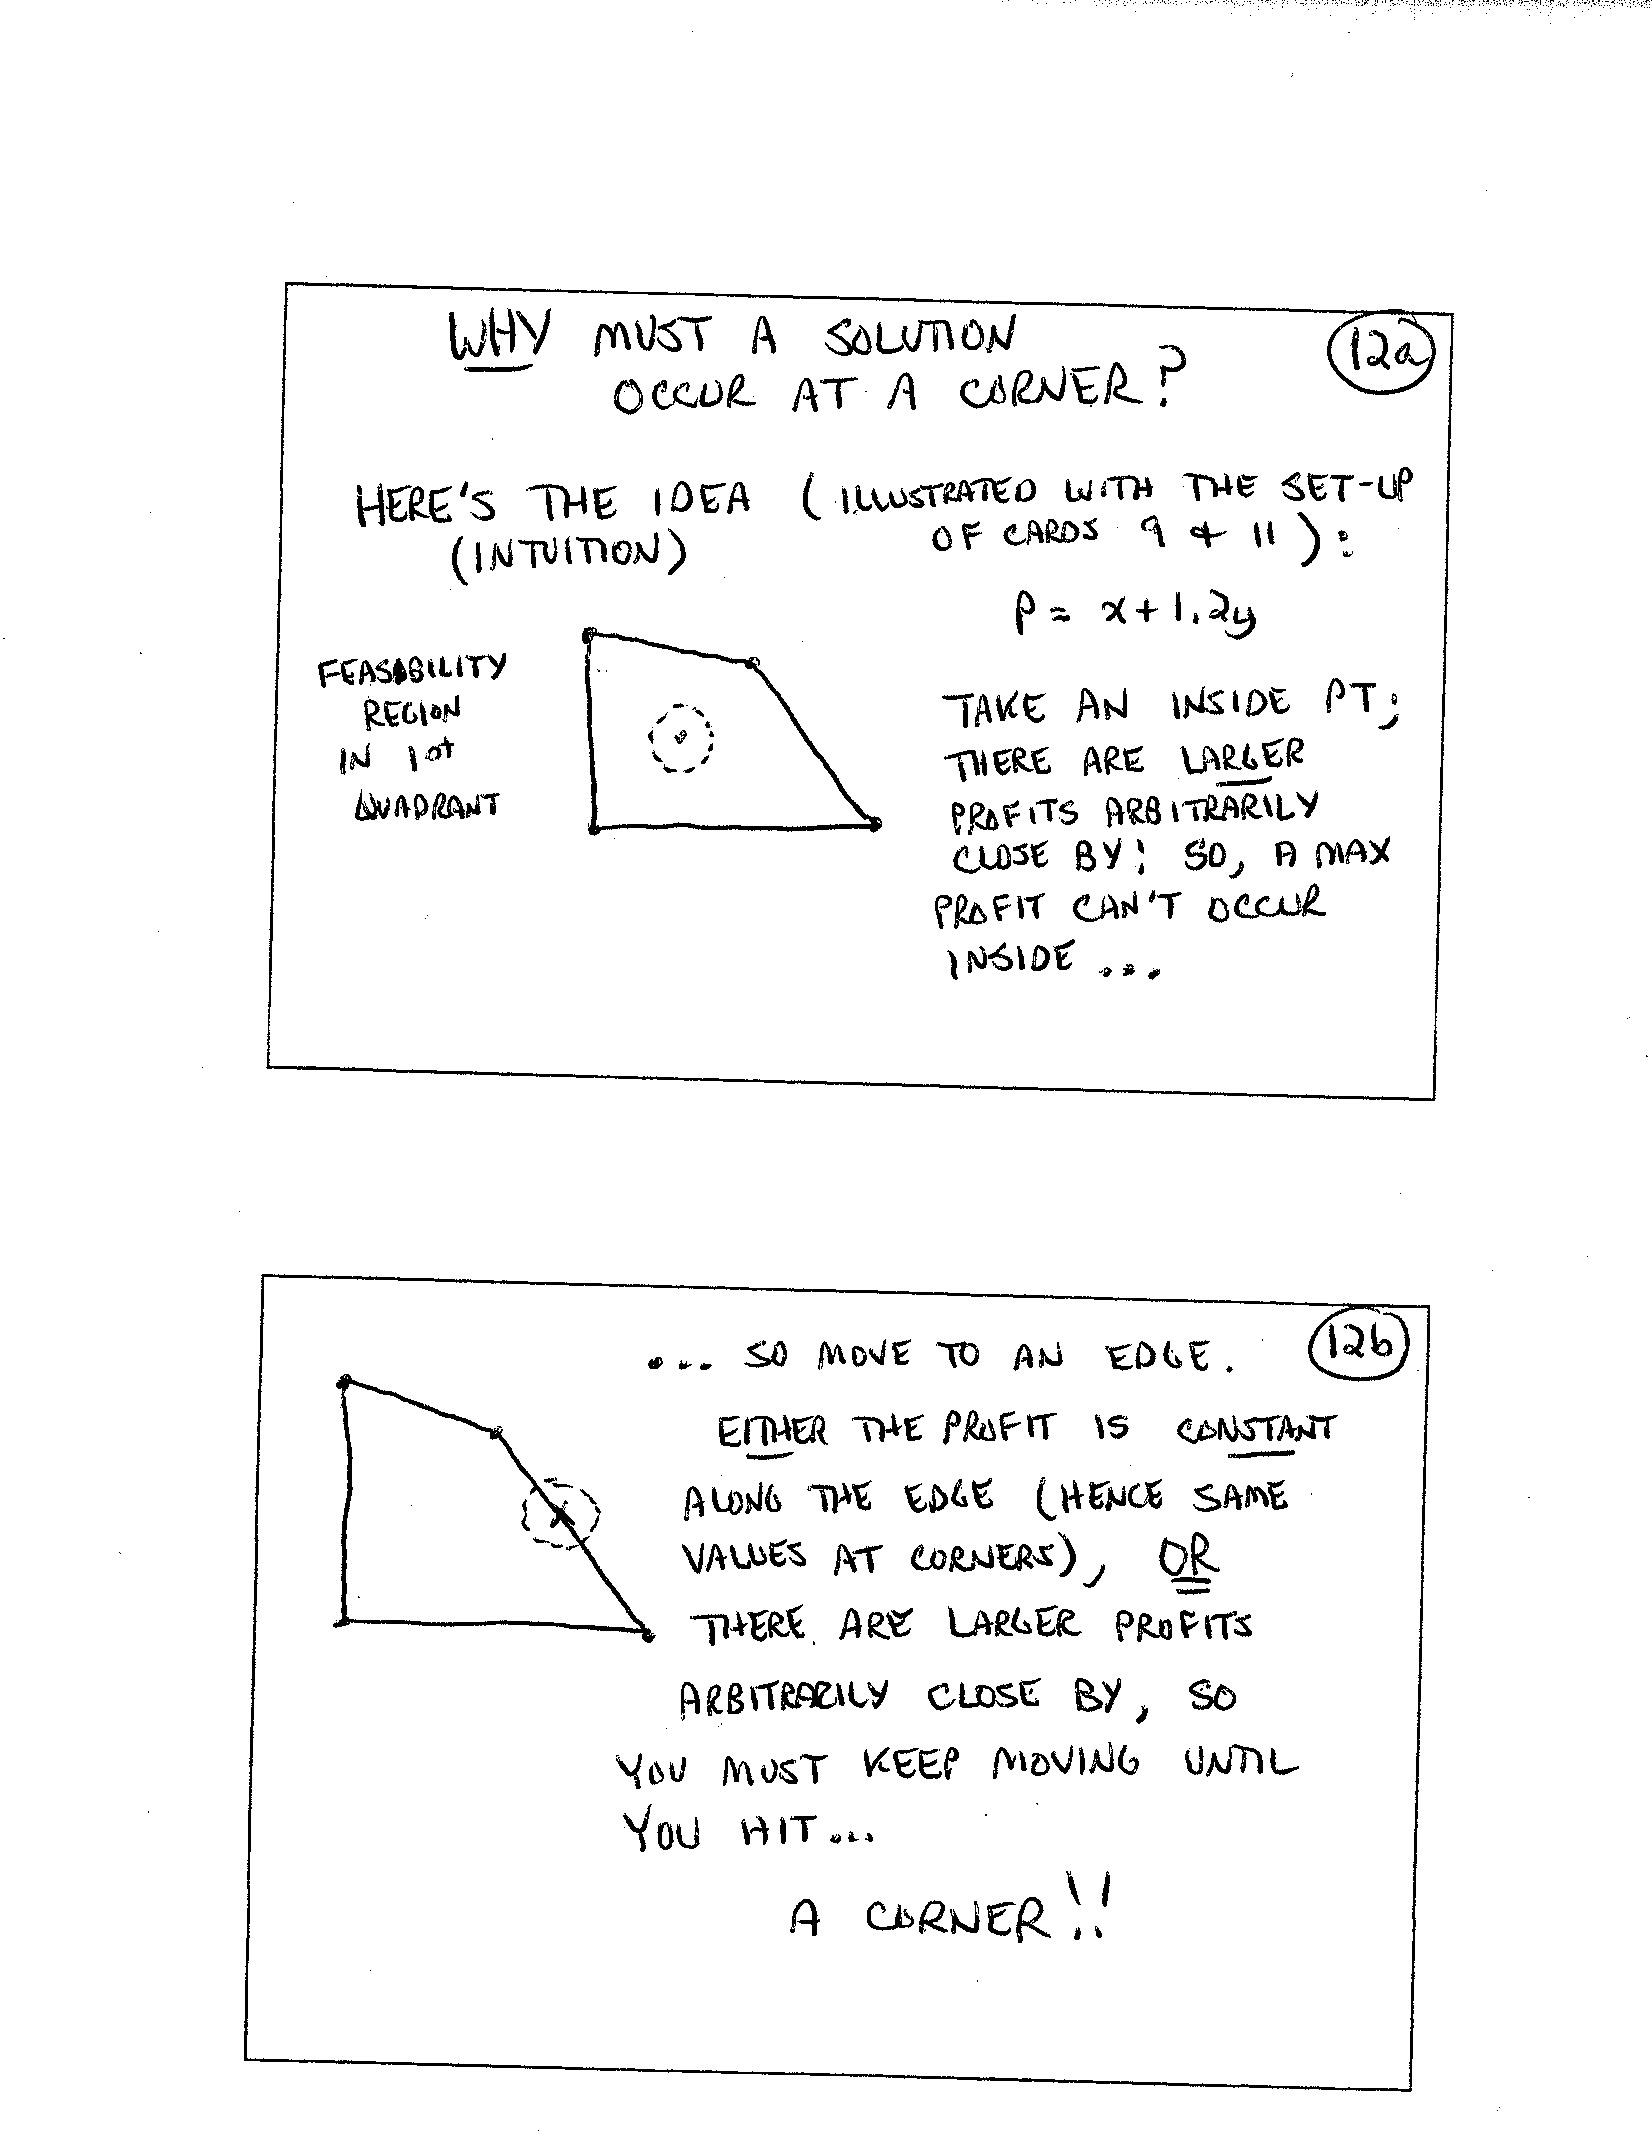 WHY MUST A SOLUTION
OCCUR AT A CORNER?
12a
HERE'S THE IDEA (ILLUSTRATED WITH THE SET-UP
(INTUITION) OF CARDS 9 & 11):
P = x + 1.2y
FEASIBILITY
REGION
IN 1st
QUADRANT
TAKE AN INSIDE PT;
THERE ARE LARGER
PROFITS ARBITRARILY
CLOSE BY; SO, A MAX
PROFIT CAN'T OCCUR
INSIDE ...
12b
... SO MOVE TO AN EDGE.
EITHER THE PROFIT IS CONSTANT
ALONG THE EDGE (HENCE SAME
VALUES AT CORNERS), OR
THERE ARE LARGER PROFITS
ARBITRARILY CLOSE BY, SO
YOU MUST KEEP MOVING UNTIL
YOU HIT...
A CORNER!!